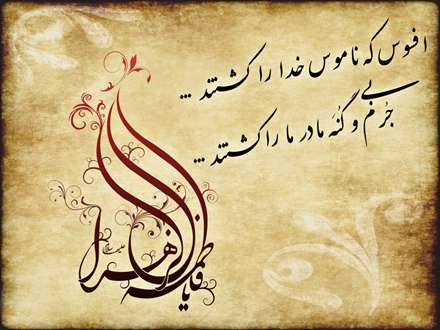 افسوس که ناموس خدا را کشتند ...
بی جرم و گنه مادر ما را کشتند ...
یا فاطمة الزهرا
علیها السلام